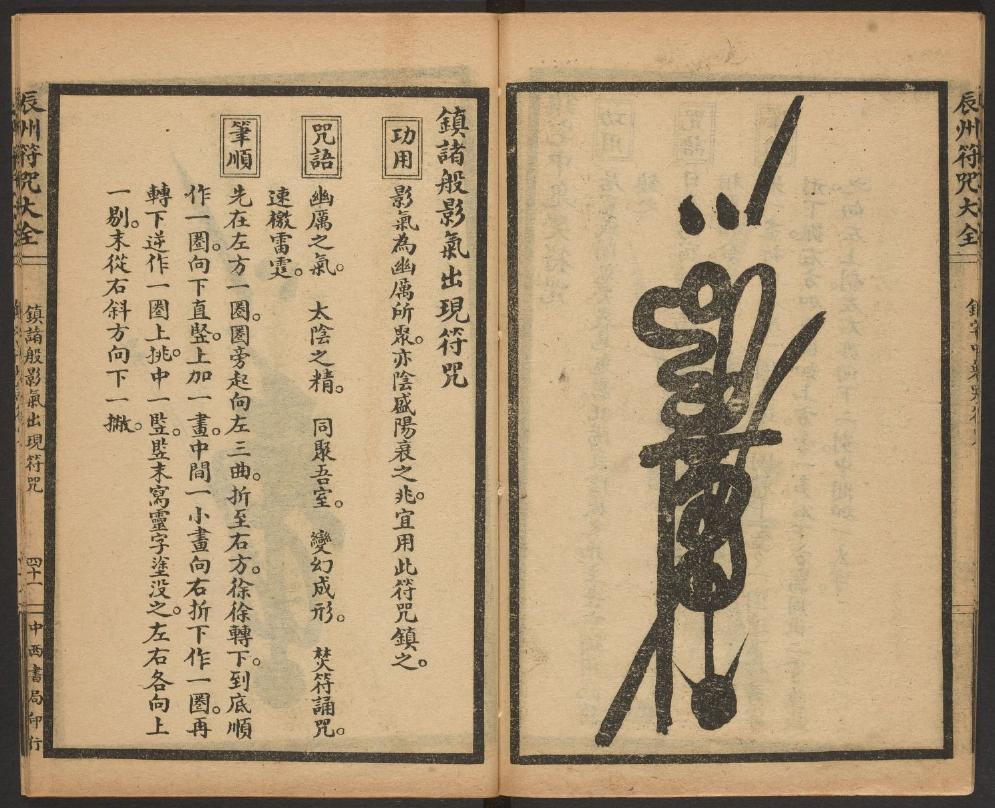 辰州符咒大全
鎮諸般影氣出現符咒
功用
影氣為幽厲所聚。亦陰盛陽衰之兆。宜用此符咒鎮之。
咒語
幽厲之氣。 太陰之精。 同聚吾室。 變幻成形。 焚符誦咒。
速檄雷霆。
筆順
先在左方一圈。圈旁起向左三曲。折至右方。徐徐轉下。到底順
作一圈。向下直豎。上加一畫。中間一小畫向右折下作一圈。再
轉下逆作一圈上挑。中一豎。豎末寫靈字塗沒之。左右各向上
一剔。末從右斜方向下一撇。
辰州符咒大全
鎮諸般影氣出現符咒
四十一
中西書局印行